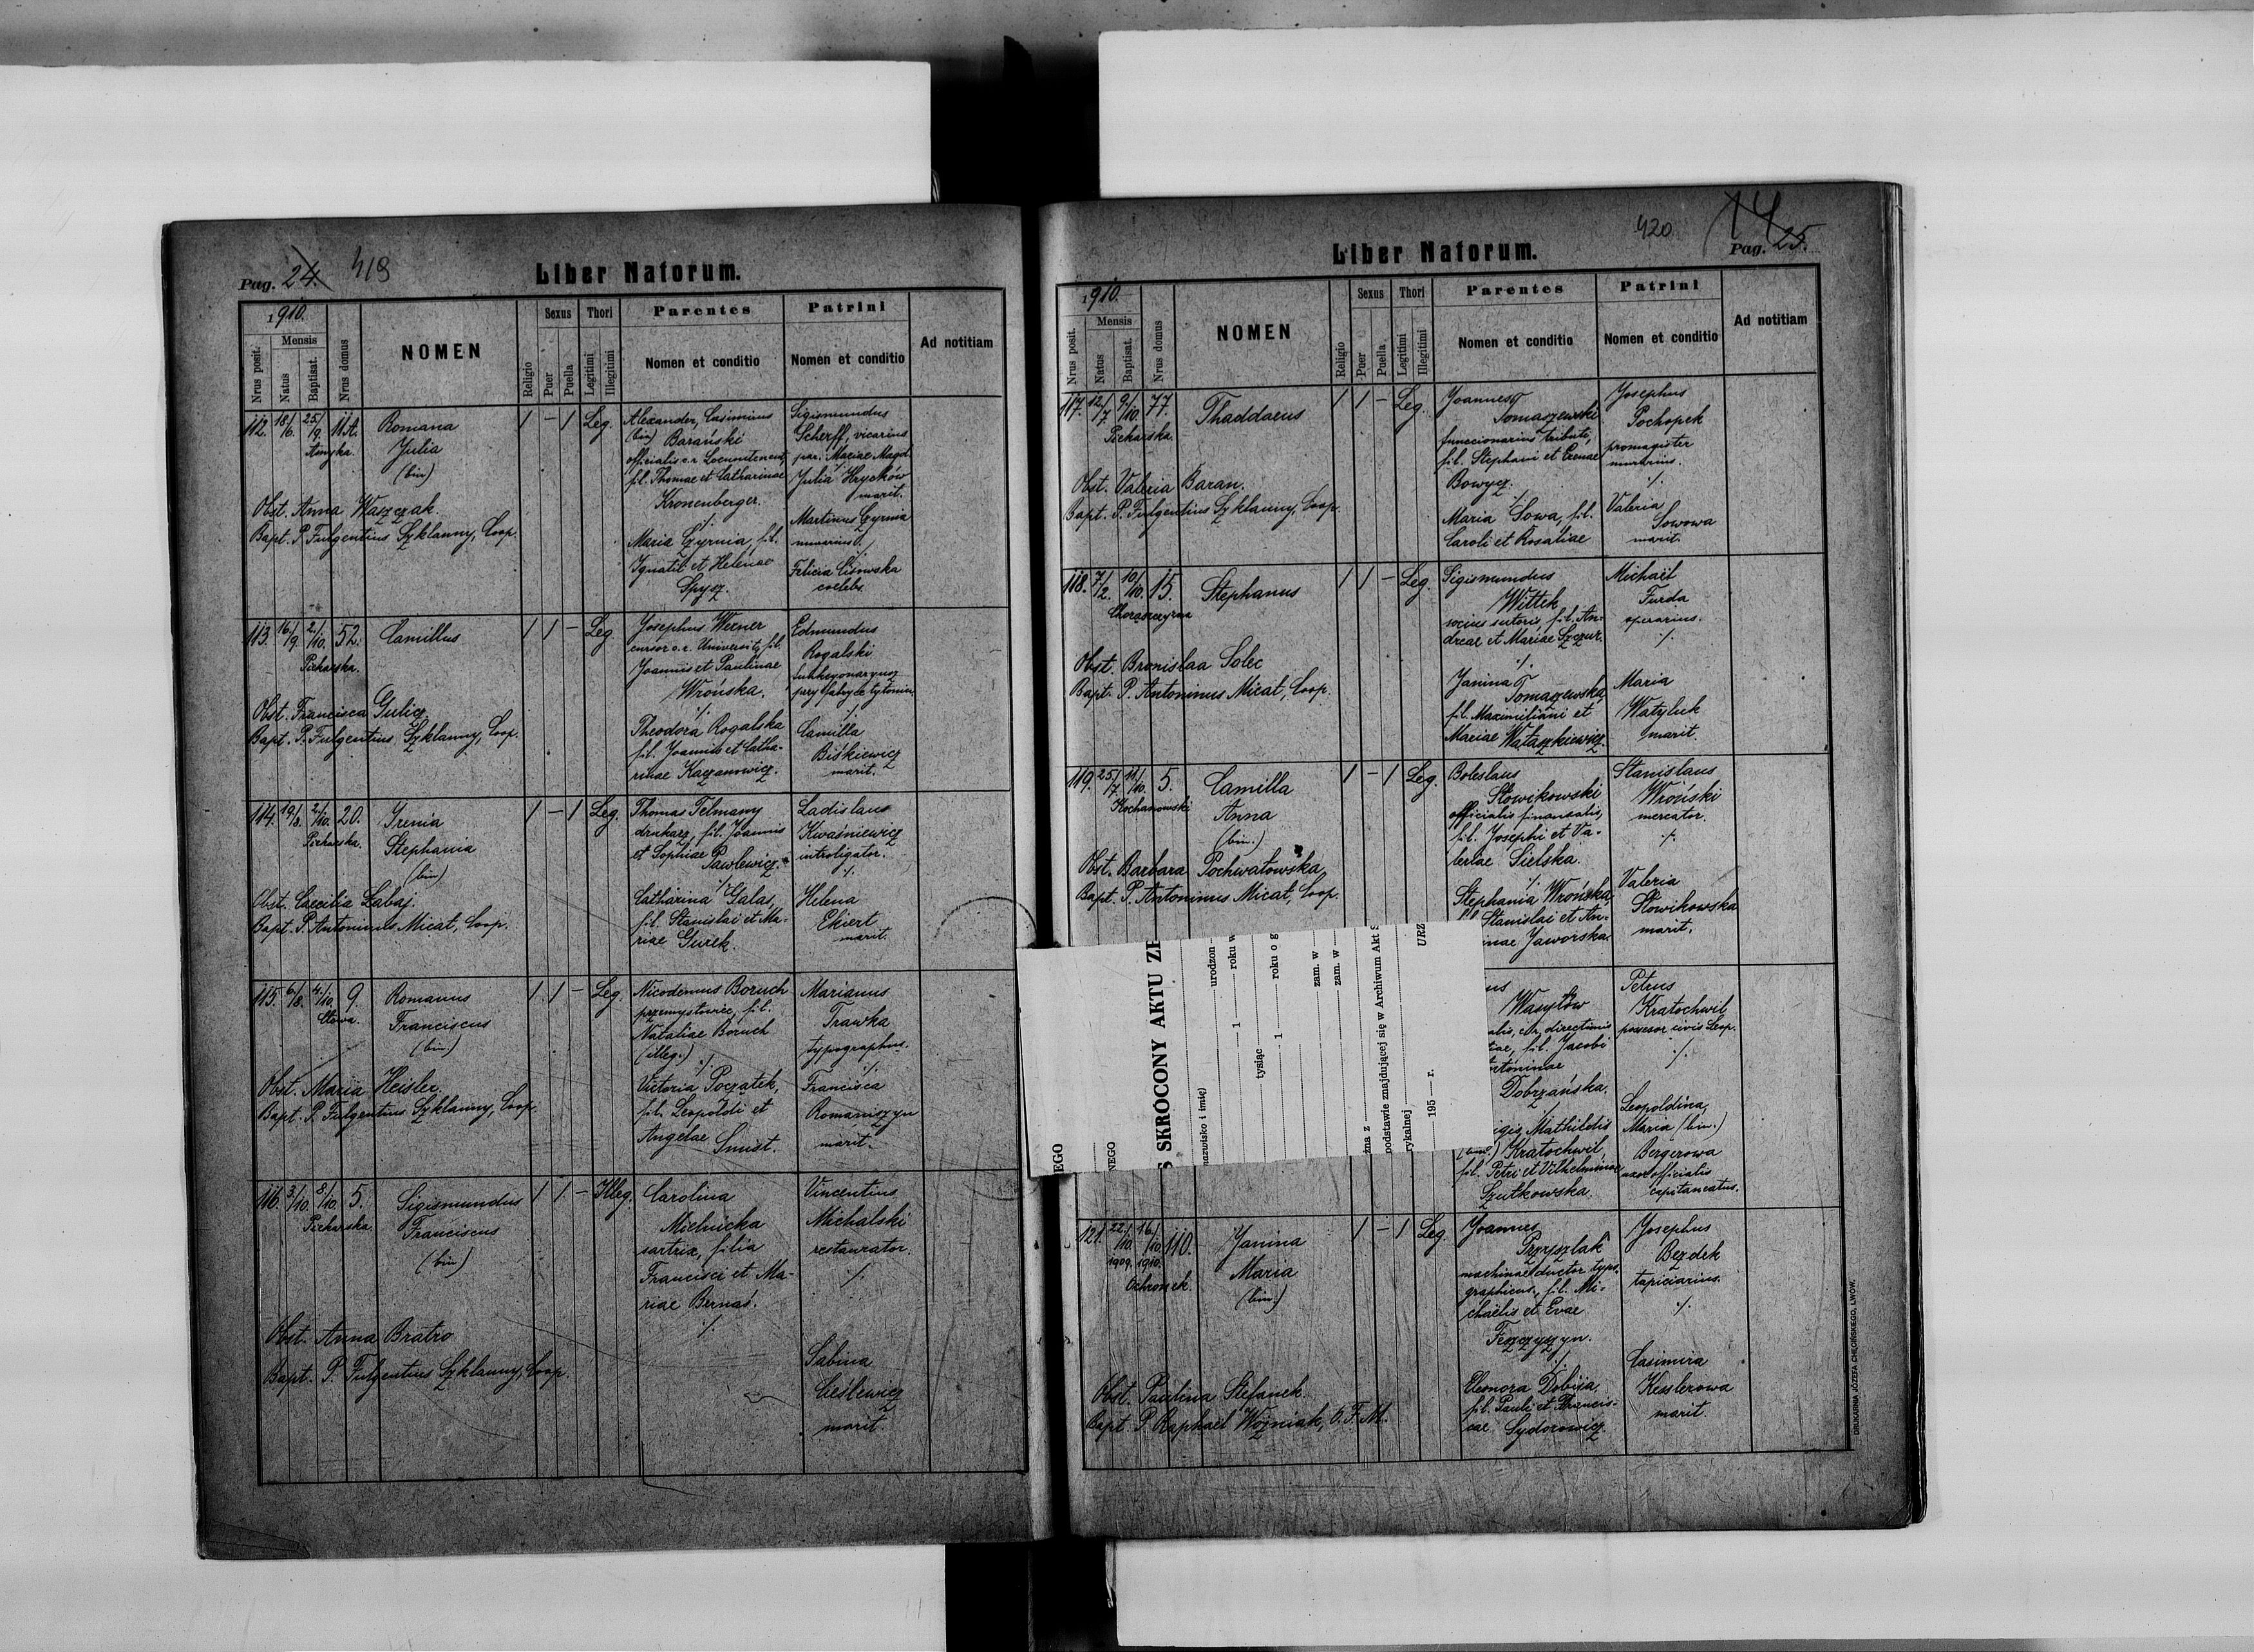 Pag. 24. 419
Liber Natorum.
1910.
Mensis
Nrus posit.
Natus
Baptisat.
Nrus domus
NOMEN
Religio
Sexus
Puer
Puella
Thori
Legitimi
Illegitimi
Parentes
Nomen et conditio
Patrini
Nomen et conditio
Ad notitiam
112. 18/6. 25/9. 11A.
Romana
Julia
(bin)
1 - 1 Leg.
Obst. Anna Waszczak.
Bapt. P. Fulgentius Szklanny, Coop.
Alexander, Casimirus
(bin) Barański
officialis c.r. Locumtenent,
fil. Thomae et Catharinae
Kronenberger.
·/.
Maria Czyrnia, fil.
Ignatii et Helenae
Spysz.
Sigismundus
Scherff, vicarius
par. Mariae Magd.
Julia Hryckow
marit.
Martinus Czyrnia
murarius
·/.
Felicia Lisowska
coelebs.
113. 16/9. 2/10. 52.
Piekarska.
Camillus
1 1 - Leg.
Obst. Francisca Gulicz
Bapt. P. Fulgentius Szklanny, Coop.
Josephus Werner
cursor c.r. Universit, fil.
Joannis et Paulinae
Wrońska.
·/.
Theodora Rogalska
fil. Joannis et Catha-
rinae Kaczanowicz.
Edmundus
Rogalski
przy fabryce tytoniu
·/.
Camilla
Biśkiewicz
marit.
114. 19/8. 2/10. 20.
Piekarska.
Irenia
Stephania
(bin)
1 - 1 Leg.
Obst. Caecilia Łabaj.
Bapt. P. Antoninus Micat, Coop.
Thomas Telmany
drukarz, fil. Joannis
et Sophiae Pawlewicz.
·/.
Catharina Galas,
fil. Stanislai et Ma-
riae Gurek.
Ladislaus
Kwaśniewicz
introligator.
·/.
Helena
Ekiert
marit.
115. 6/8. 4/10. 9.
Romanus
Franciscus
(bin)
1 1 - Leg.
Obst. Maria Heisler.
Bapt. P. Fulgentius Szklanny, Coop.
Nicodemus Boruch
przemysłowiec, fil.
Nataliae Boruch
(illeg.)
·/.
Victoria Początek,
fil. Leopoldi et
Angelae Smist.
Marianus
Trawka
typographus.
·/.
Francisca
Romaniszyn
marit.
116. 3/10. 8/10. 5.
Piekarska.
Sigismundus
Franciscus
(bin)
1 1 - Illeg.
Obst. Anna Bratro
Bapt. P. Fulgentius Szklanny, Coop.
Carolina
Mielnicka
sartrix, filia
Francisci et Ma-
riae Bernaś.
·/.
Vincentius
Michalski
restaurator.
·/.
Sabina
Cieślewicz
marit.
420 14
Pag. 25.
Liber Natorum.
1910.
Mensis
Nrus posit.
Natus
Baptisat.
Nrus domus
NOMEN
Religio
Sexus
Puer
Puella
Thori
Legitimi
Illegitimi
Parentes
Nomen et conditio
Patrini
Nomen et conditio
Ad notitiam
117. 12/7. 9/10. 77.
Piekarska.
Thaddaeus
1 1 - Leg.
Obst. Valeria Baran.
Bapt. P. Fulgentius Szklanny, Coop.
Joannes
Tomaszewski
funccionarius tribut,
fil. Stephani et Irenae
Bowycz.
·/.
Maria Sowa, fil.
Caroli et Rosaliae
Josephus
Pochopek
promagister
murarius.
·/.
Valeria
Sowowa
marit.
118. 7/2. 10/10. 15.
Stephanus
1 1 - Leg.
Obst. Bronislaa Solec
Bapt. P. Antoninus Micat, Coop.
Sigismundus
Wittek
socius sutoris, fil. An-
dreae et Mariae Szczur.
·/.
Janina
Tomaszewska,
fil. Maximiliani et
Mariae Wataszkiewicz.
Michaël
Furda
operarius.
·/.
Maria
Watyluk
marit.
119. 25/7. 11/10. 5.
Kochanowski
Camilla
Anna
(bin.)
1 - 1 Leg.
Obst. Barbara Pochwatowska,
Bapt. P. Antoninus Micat, Coop.
Boleslaus
Słowikowski
officialis finansalis,
fil. Josephi et Va-
leriae Sielska.
·/.
Stephania Wrońska,
Stanislai et An-
nae Jaworska.
Stanislaus
Wroński
mercator.
·/.
Valeria
Słowikowska
marit.
EGO
NEGO
S SKRÓCONY AKTU
nazwisko i imię)
urodzon
1 roku w
tysiąc
1 roku o g
zam. w
zam. w
podstawie znajdującej się w Archiwum Akt
rykalnej
195 r.
URZ
Wasyłów
directionis
fil. Jacobi
Dobrzańska.
·/.
Mathildis
(bin.) Kratochwil,
fil. Petri et Vilhelminae
Szutkowska.
Petrus
Kratochwil
possesor civis Leop.
·/.
Leopoldina,
Maria (bin.)
Bergerowa
uxor officialis
capitaneatus.
121. 22/10. 1909. 16/10. 1910. 110.
Ochronek.
Janina
Maria
(bin.)
1 - 1 Leg.
Obst. Paulina Stefanek.
Bapt. P. Raphaël Woźniak, O. F. M.
Joannes
Przyszlak
machinae ductor typo-
graphicus, fil. Mi-
chaëlis et Evae
Feszczyszyn.
·/.
Eleonora Dobija,
fil. Pauli et Francis-
cae Sydorowicz.
Josephus
Bezdek
tapiciarius.
·/.
Casimira
Kesslerowa
marit.
DRUKARNIA JÓZEFA CHĘCIŃSKIEGO, LWÓW.